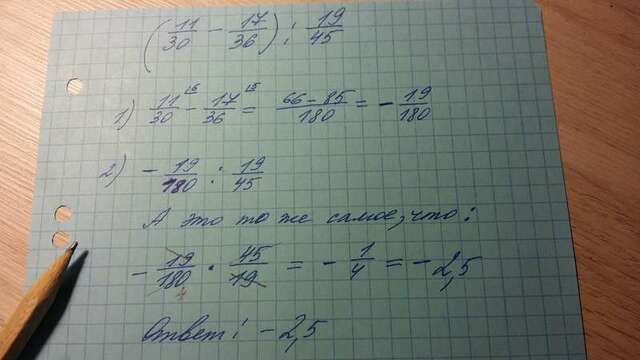 (11/30 - 17/36) : 19/45
1) 11/30 - 17/36 = 66-85/180 = - 19/180
2) - 19/180 : 19/45
А это то же самое, что:
- 19/180 · 45/19 = - 1/4 = - 2,5
4
Ответ: -2,5